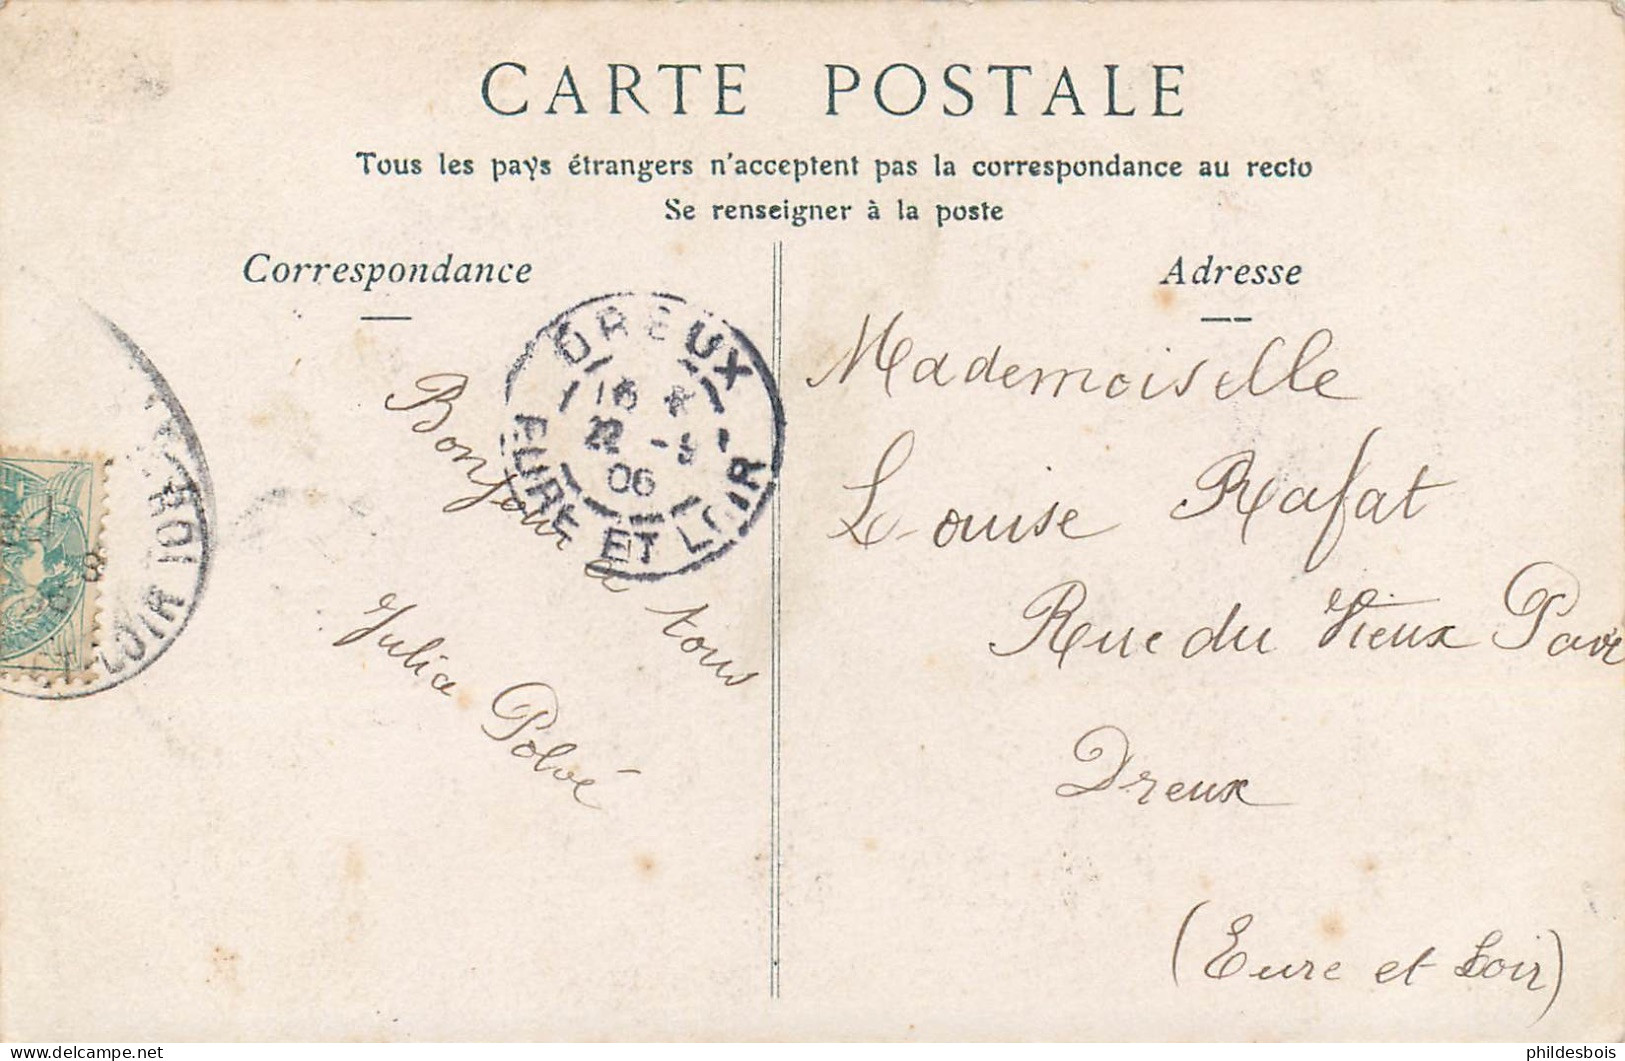 CARTE POSTALE
Tous les pays étrangers n'acceptent pas la correspondance au recto
Se renseigner à la poste
Correspondance
Adresse
Bonjour à tous
Julia Polvé
DREUX
22 -5
06
EURE ET LOIR
LOIR
Mademoiselle
Louise Rafat
Rue du Vieux Pavé
Dreux
(Eure et Loir)
phildesbois